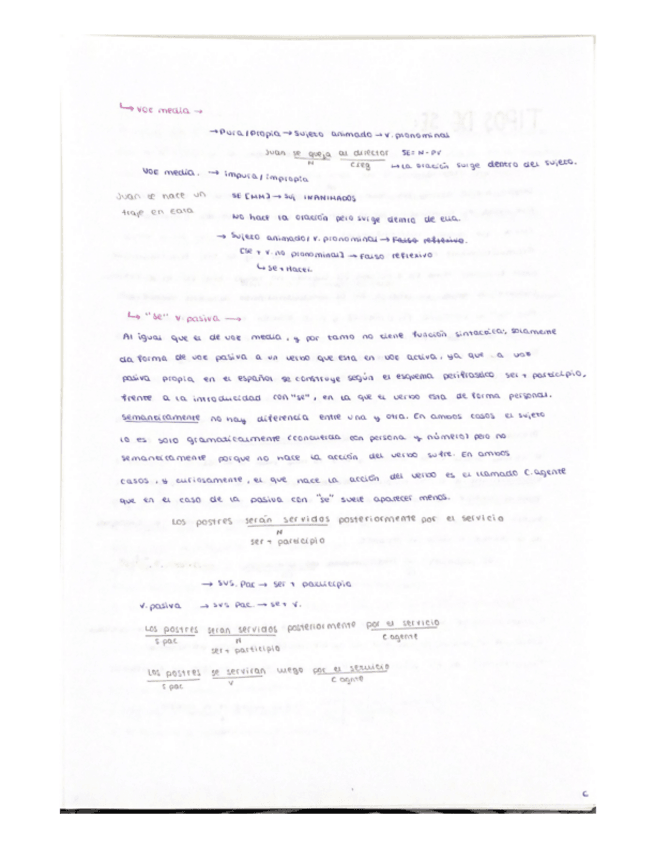 ↳ voz media →
→ Pura/propia → sujeto animado → v. pronominal
Juan se queja al director SE = N-PV
N C.reg → La oración surge dentro del sujeto.
Voz media. → impura/impropia
Juan se hace un SE [MM] → suj INANIMADOS
traje en casa
No hace la oración pero surge dentro de ella.
→ Sujeto animado/ v. pronominal → Falso reflexivo.
[se + v. no pronominal] → Falso reflexivo
↳ se + Hacer
↳ "se" v. pasiva →
Al igual que el de voz media, y por tanto no tiene función sintáctica, solamente
da forma de voz pasiva a un verbo que está en voz activa, ya que la voz
pasiva propia en el español se construye según el esquema perifrástico ser + participio,
frente a la introducidad con "se", en la que el verbo está de forma personal.
semanticamente no hay diferencia entre una y otra. En ambos casos el sujeto
lo es solo gramaticalmente (concuerda con persona y número) pero no
semanticamente porque no hace la acción del verbo sufre. En ambos
casos, y curiosamente, el que hace la acción del verbo es el llamado C. agente
que en el caso de la pasiva con "se" suele aparecer menos.
Los postres serán servidos posteriormente por el servicio
N
ser + participio
→ sus. Pac → ser + participio
v. pasiva → sus Pac. → se + v.
Los postres seran servidos posteriormente por el servicio
S pac N C agente
ser + participio
Los postres se servirán luego por el servicio
S pac V C agente
TIPOS DE SE:
6